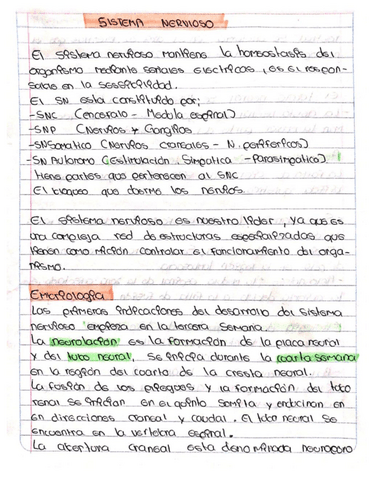 SISTEMA NERVIOSO
El sistema nervioso mantiene la homeostasis del
organismo mediante señales electricas, es el respon-
sable en la sensibilidad.
El SN esta constituido por:
-SNC (encefalo - Medula espinal)
-SNP (Nervios y Ganglios)
-SNSomatico (Nervios craneales - N. perifericos)
-SN Autonomo (Estimulación, Simpatica - Parasimpatico)
tiene partes que pertenecen al SNC
El bloqueo que duerme los nervios.
El sistema nervioso es nuestro lider, ya que es
una compleja red de estructuras especializadas que
tienen como misión controlar el funcionamiento del orga-
nismo.
Embriología
Las primeras indicaciones del desarrollo del sistema
nervioso empieza en la tercera semana.
La neurolación es la formación de la placa neural
y del tubo neural, se inicia durante la cuarta semana
en la región del cuarto de la cresta neural.
La fusión de los pliegues y la formación del tubo
renal se inician en el quinto somita y
en direcciones craneal y caudal. El tubo neural se
encuentra en la vertebra espinal.
La abertura craneal esta denominada neuroporo